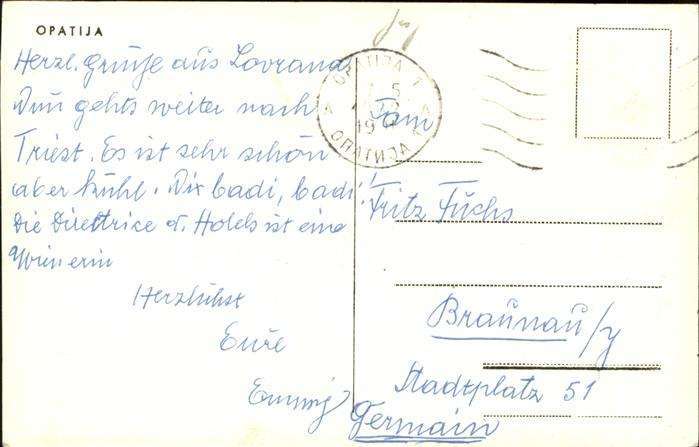 OPATIJA
Herzl. Grüße aus Lovrana
Nun gehts weiter nach
Triest. Es ist sehr schön
aber kühl. Nix badi, badi!
Die Direktrice d. Hotels ist eine
Wienerin
Herzlichst
Eure
OPATIJA 1
ОПАТИЈА
Fam
Fritz Fuchs
Braunau/y
Stadtplatz 51
Germain